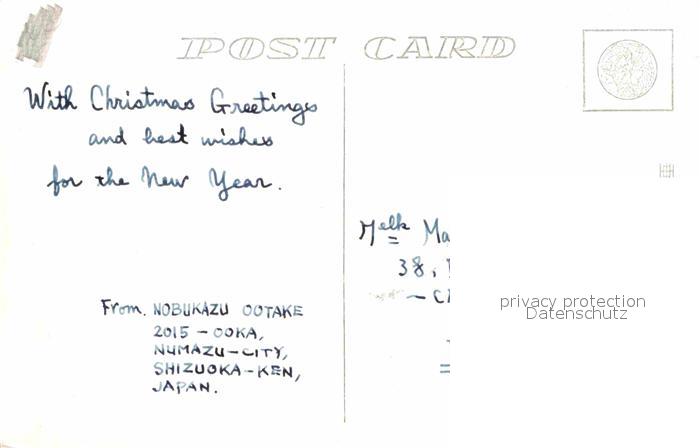 POST CARD
With Christmas Greetings
and best wishes
for the New Year.
Melle Ma
38,
privacy protection
Datenschutz
From. NOBUKAZU OOTAKE
2015 - OOKA,
NUMAZU-CITY,
SHIZUOKA-KEN,
JAPAN.